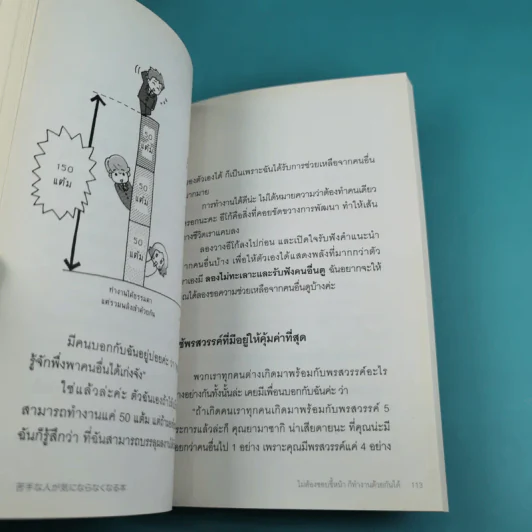 150
แต้ม
50
แต้ม
50
แต้ม
50
แต้ม
ทำงานได้ธรรมดา
แต่รวมพลังเข้าด้วยกัน
มีคนบอกกับฉันอยู่บ่อยค่ะ ว่า
รู้จักพึ่งพาคนอื่นได้เก่งจัง"
ใช่แล้วล่ะค่ะ ตัวฉันเองถ้า
สามารถทำงานแค่ 50 แต้ม แต่
ฉันก็รู้สึกว่า ที่ฉันสามารถบรรลุผล
苦手な人が気にならなくなる本
ของตัวเองได้ ก็เป็นเพราะฉันได้รับการช่วยเหลือจากคนอื่น
มากมาย
การทำงานได้ดีน่ะ ไม่ได้หมายความว่าต้องทำคนเดียว
หรอกนะคะ อีโก้คือสิ่งที่คอยขัดขวางการพัฒนา ทำให้เส้น
ทางชีวิตเราแคบลง
ลองวางอีโก้ลงไปก่อน และเปิดใจรับฟังคำแนะนำ
จากคนอื่นบ้าง เพื่อให้ตัวเองได้แสดงพลังที่มากกว่าตัว
เราเองมี ลองไม่ทะเลาะและรับฟังคนอื่นดู ฉันอยากจะให้
คุณได้ลองขอความช่วยเหลือจากคนอื่นดูบ้างค่ะ
ใช้พรสวรรค์ที่มีอยู่ให้คุ้มค่าที่สุด
พวกเราทุกคนต่างเกิดมาพร้อมกับพรสวรรค์อะไร
บางอย่างกันทั้งนั้นล่ะ เคยมีเพื่อนบอกกับฉันค่ะ ว่า
"ถ้าเกิดคนเราทุกคนเกิดมาพร้อมกับพรสวรรค์ 5
ประการแล้วล่ะก็ คุณยามาซากิ น่าเสียดายนะ ที่คุณน่ะมี
น้อยกว่าคนอื่นไป 1 อย่าง เพราะคุณมีพรสวรรค์แค่ 4 อย่าง
ไม่ต้องชอบขี้หน้า ก็ทำงานด้วยกันได้ 113